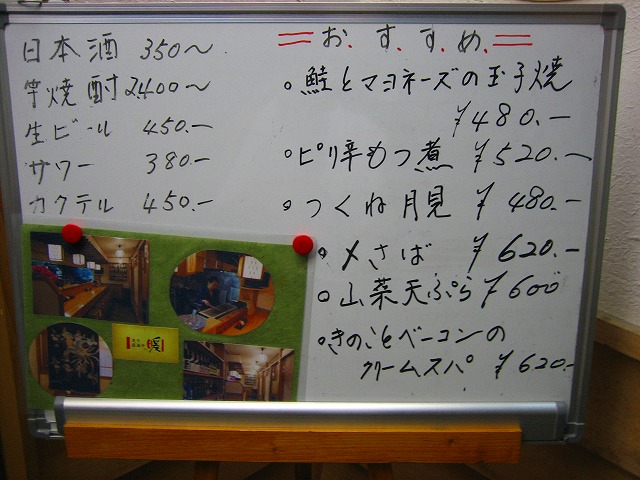 日本酒 350〜
芋焼酎 2,400〜
生ビール 450.ー
サワー 380ー
カクテル 450.ー
おすすめ
・鮭とマヨネーズの玉子焼
¥480.ー
・ピリ辛もつ煮 ¥520.ー
・つくね月見 ¥480.ー
・〆さば ¥620.ー
・山菜天ぷら ¥600
・きのことベーコンの
クリームスパ ¥620.ー
暖